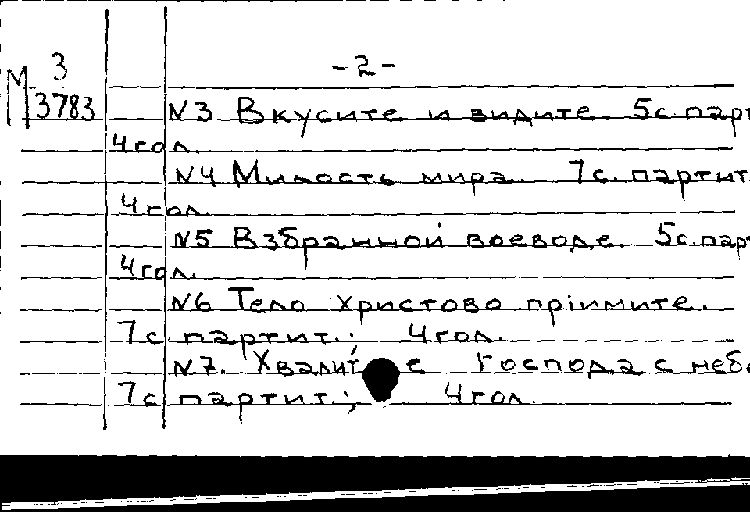 М 3
3783
-2-
№3 Вкусите и видите. 5с. парт
4гол.
№4 Милость мира. 7с. партит
4гол.
№5 Взбранной воеводе. 5с. пар
4гол.
№6 Тело Христово прiимите.
7с партит.; 4гол.
№7. Хвалите Господа с небе
7с партит.; 4гол.